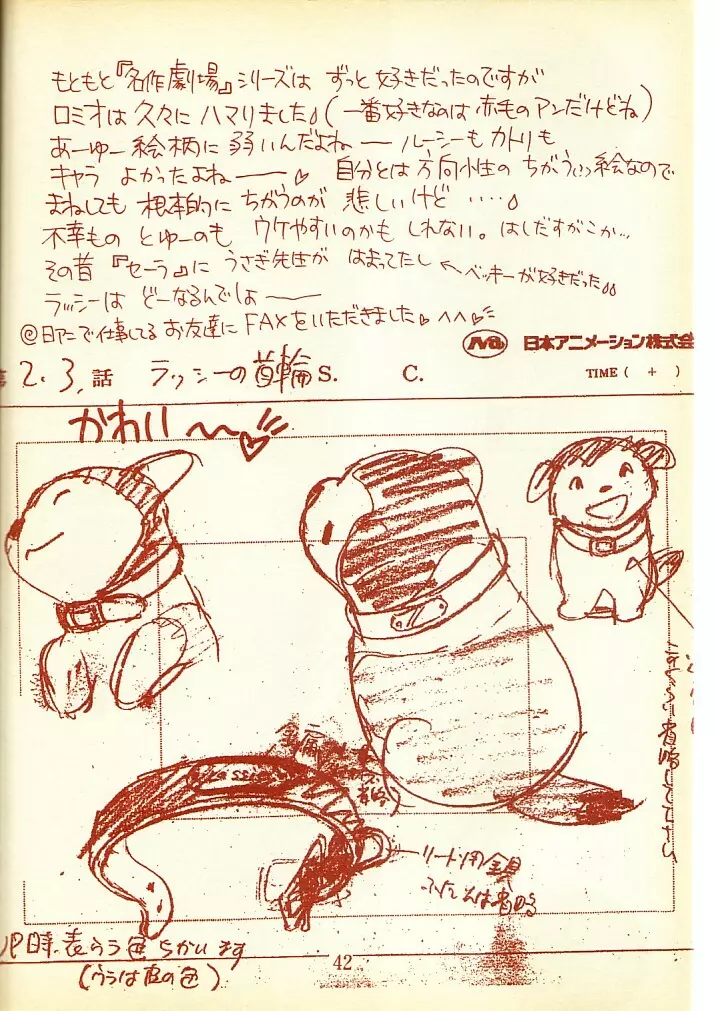 もともと『名作劇場』シリーズは ずっと好きだったのですが
ロミオは久々に ハマりました。(一番好きなのは赤毛のアンだけどね)
あーゆー絵柄に 弱いんだよね── ルーシーもカトリも
キャラ よかったよね──♡ 自分とは方向性の ちがう絵なので
まねしても 根本的に ちがうのが 悲しいけど ‥‥。
不幸もの とゆーのも ウケやすいのかも しれない。はしだすがこか…
その昔 『セーラ』に うさぎ先生が はまってたし ←ベッキーが好きだった。
ラッシーは どーなるんでしょ──
@日アニで仕事してる お友達に FAXをいただきました♡ ^^♡
日本アニメーション株式会
2.3.話 ラッシーの首輪 S. C. TIME ( + )
かわい〜〜♡
リード用金具
ふだんは省略
表うら色ちがいます
(ウラは皮の色)
42